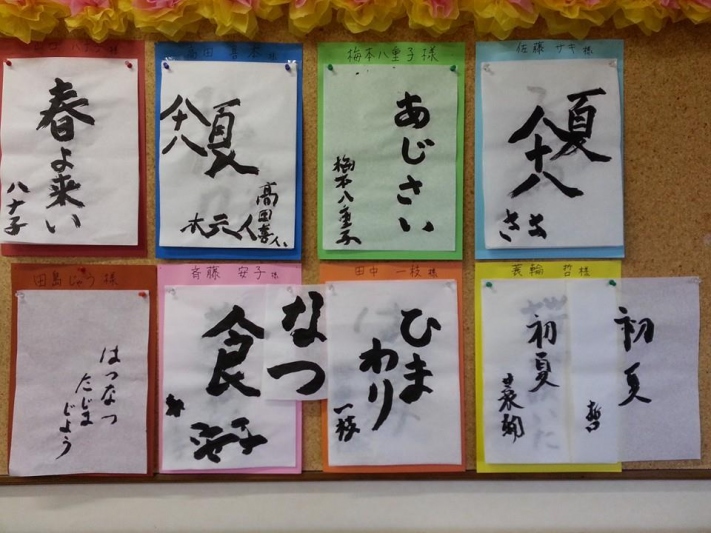 梅本八重子様
佐藤 サキ様
春よ来い
八ナ子
夏
大元人
高田喜人
あじさい
梅本八重子
夏
八十八
さき
田島じゅう様
斉藤 安子様
田中 一枝様
蓑輪 哲様
はつなつ
たじま
じゅう
食
安子
なつ
ひま
わり
一枝
初夏
蓑輪
初夏
哲